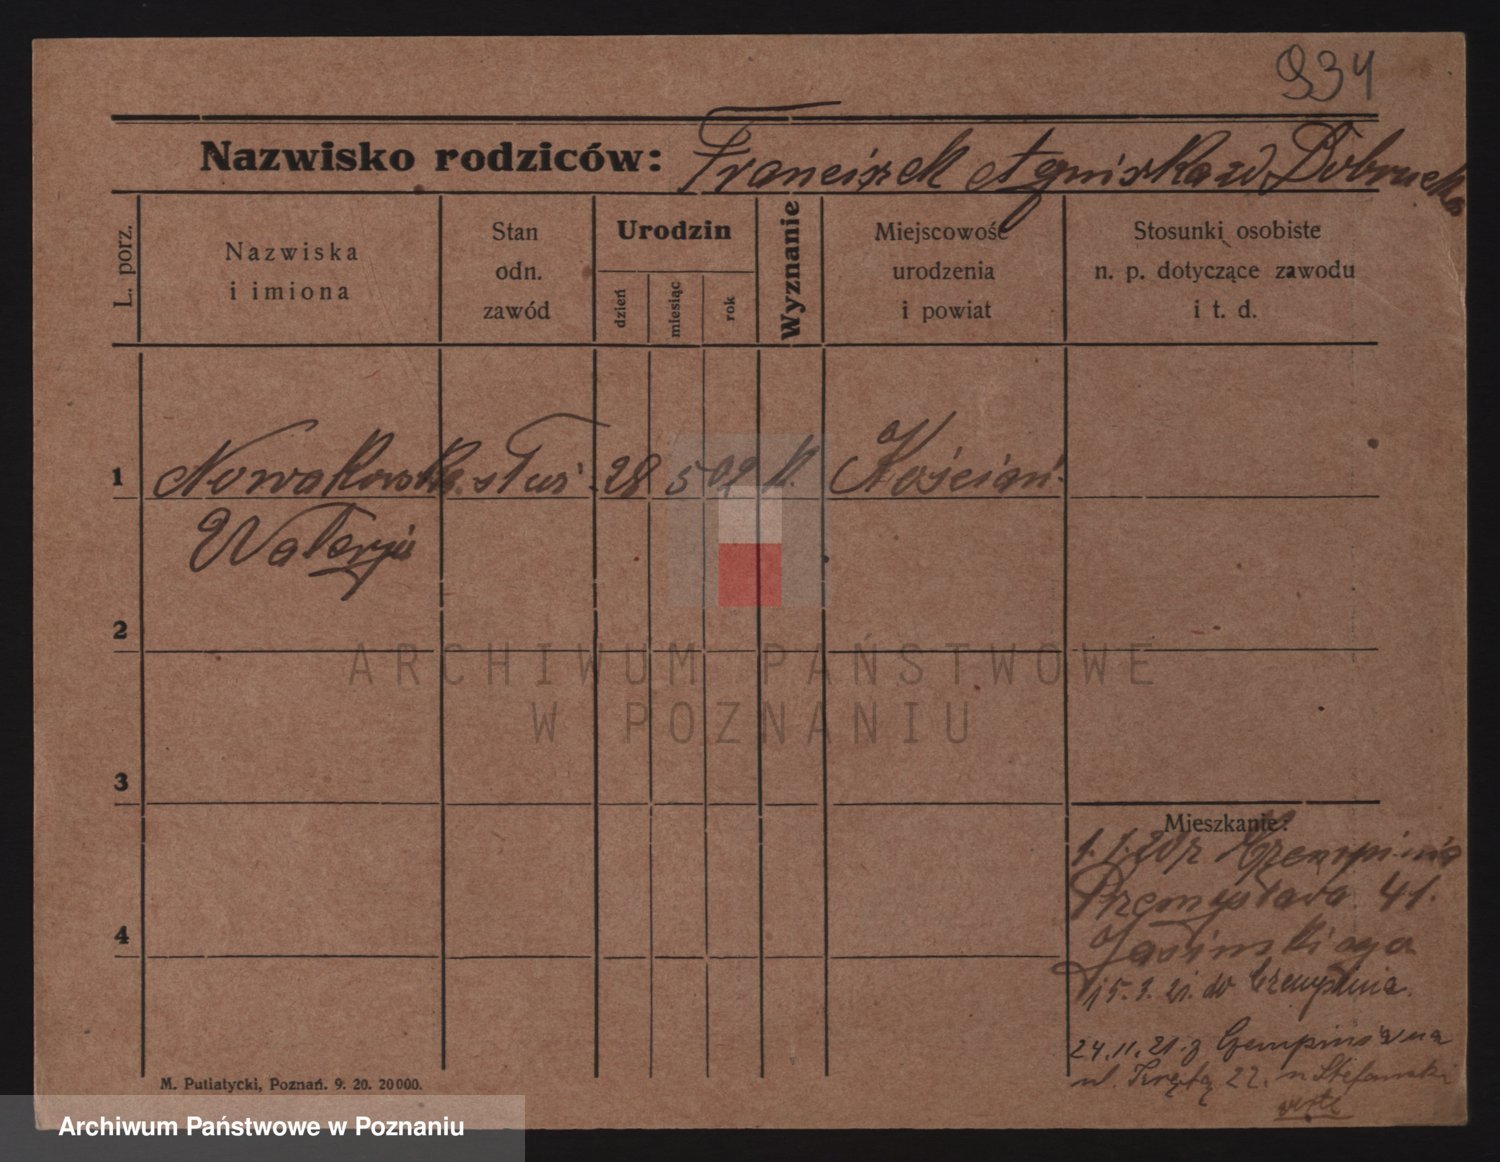 934
Nazwisko rodziców: Franciszek Agniszka zd. Dobrucka
L. porz.
Nazwiska
i imiona
Stan
odn.
zawód
Urodzin
dzień
miesiąc
rok
Wyznanie
Miejscowość
urodzenia
i powiat
Stosunki osobiste
n. p. dotyczące zawodu
i t. d.
1 Nowakowska służ. 28 5 02 k. Kościan
Walerja
2
ARCHIWUM PAŃSTWOWE
W POZNANIU
3
Mieszkanie:
1.1.20 z Czempinia
Przemysława 41.
Jasinskiego
15.1.21. do Czempinia.
4
24.11.21. z Czempinia na
ul. Krętą 22. u Stefanski
M. Putiatycki, Poznań. 9. 20. 20000.
Archiwum Państwowe w Poznaniu